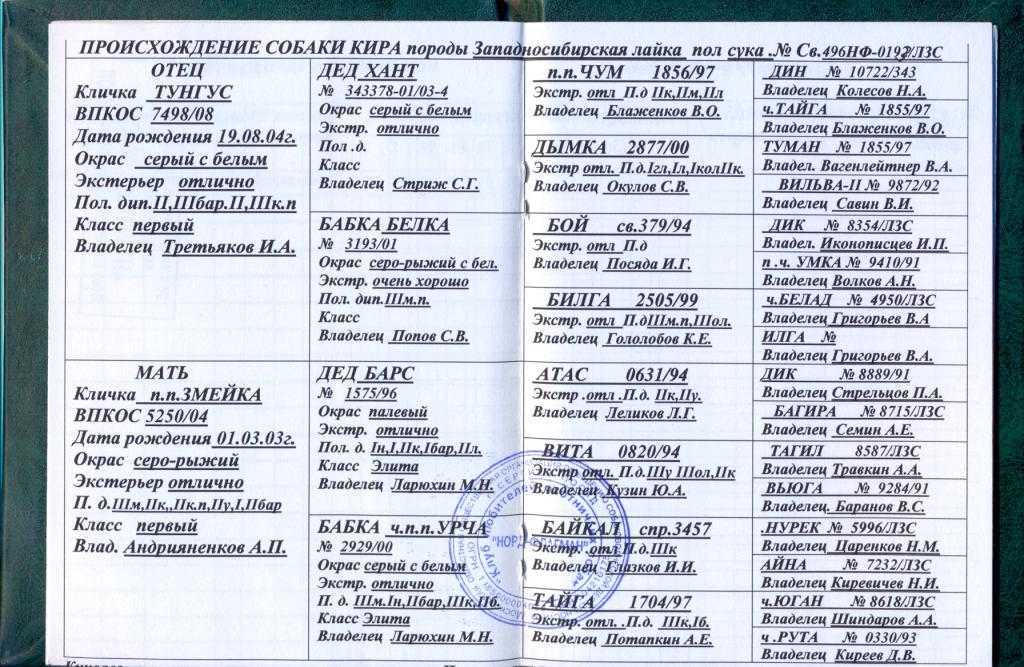 ПРОИСХОЖДЕНИЕ СОБАКИ КИРА породы Западносибирская лайка пол сука .№ Св.496НФ-0193/ЛЗС
ОТЕЦ
Кличка ТУНГУС
ВПКОС 7498/08
Дата рождения 19.08.04г.
Окрас серый с белым
Экстерьер отлично
Пол. дип.II,IIIбар.II,IIIк.п
Класс первый
Владелец Третьяков И.А.
МАТЬ
Кличка п.п.ЗМЕЙКА
ВПКОС 5250/04
Дата рождения 01.03.03г.
Окрас серо-рыжий
Экстерьер отлично
П. д.IIIм,IIк,,IIк.п,IIу,I,IIбар
Класс первый
Влад. Андрияненков А.П.
ДЕД ХАНТ
№ 343378-01/03-4
Окрас серый с белым
Экстр. отлично
Пол .д.
Класс
Владелец Стриж С.Г.
БАБКА БЕЛКА
№ 3193/01
Окрас серо-рыжий с бел.
Экстр. очень хорошо
Пол. дип.IIIм.п.
Класс
Владелец Попов С.В.
ДЕД БАРС
№ 1575/96
Окрас палевый
Экстр. отлично
Пол. д. Iн,I,IIк,Iбар,IIл.
Класс Элита
Владелец Ларюхин М.Н.
БАБКА ч.п.п.УРЧА
№ 2929/00
Окрас серый с белым
Экстр. отлично
П. д. IIIм.Iн,IIбар,IIIк,IIб.
Класс Элита
Владелец Ларюхин М.Н.
п.п.ЧУМ 1856/97
Экстр. отл П.д IIк,IIм,IIл
Владелец Блаженков В.О.
ДЫМКА 2877/00
Экстр отл. П.д.Iгл,Iл,IколIIк.
Владелец Окулов С.В.
БОЙ св.379/94
Экстр. отл П.д
Владелец Посяда И.Г.
БИЛГА 2505/99
Экстр. отл П.дIIIм.п,IIIол.
Владелец Гололобов К.Е.
АТАС 0631/94
Экстр .отл .П.д. IIк,IIу.
Владелец Леликов Л.Г.
ВИТА 0820/94
Экстр отл. П.д.IIIу IIIол,IIк
Владелец Кузин Ю.А.
БАЙКАЛ спр.3457
Экстр. .отл П.д.IIIк
Владелец Глазков И.И.
ТАЙГА 1704/97
Экстр. отл. .П.д. IIIк,Iб.
Владелец Потапкин А.Е.
ДИН № 10722/343
Владелец Колесов Н.А.
ч.ТАЙГА № 1855/97
Владелец Блаженков В.О.
ТУМАН № 1855/97
Владел. Вагенлейтнер В.А.
ВИЛЬВА-II № 9872/92
Владелец Савин В.И.
ДИК № 8354/ЛЗС
Владел. Иконописцев И.П.
п.ч. УМКА № 9410/91
Владелец Волков А.Н.
ч.БЕЛАД № 4950/ЛЗС
Владелец Григорьев В.А
ИЛГА №
Владелец Григорьев В.А.
ДИК № 8889/91
Владелец Стрельцов П.А.
БАГИРА № 8715/ЛЗС
Владелец Семин А.Е.
ТАГИЛ 8587/ЛЗС
Владелец Травкин А.А.
ВЬЮГА № 9284/91
Владелец. Баранов В.С.
.НУРЕК № 5996/ЛЗС
Владелец Царенков Н.М.
АЙНА № 7232/ЛЗС
Владелец Киревичев Н.И.
ч.ЮГАН № 8618/ЛЗС
Владелец Шиндаров А.А.
ч .РУТА № 0330/93
Владелец Киреев Д.В.
"НОРД-ФЛАГМАН"